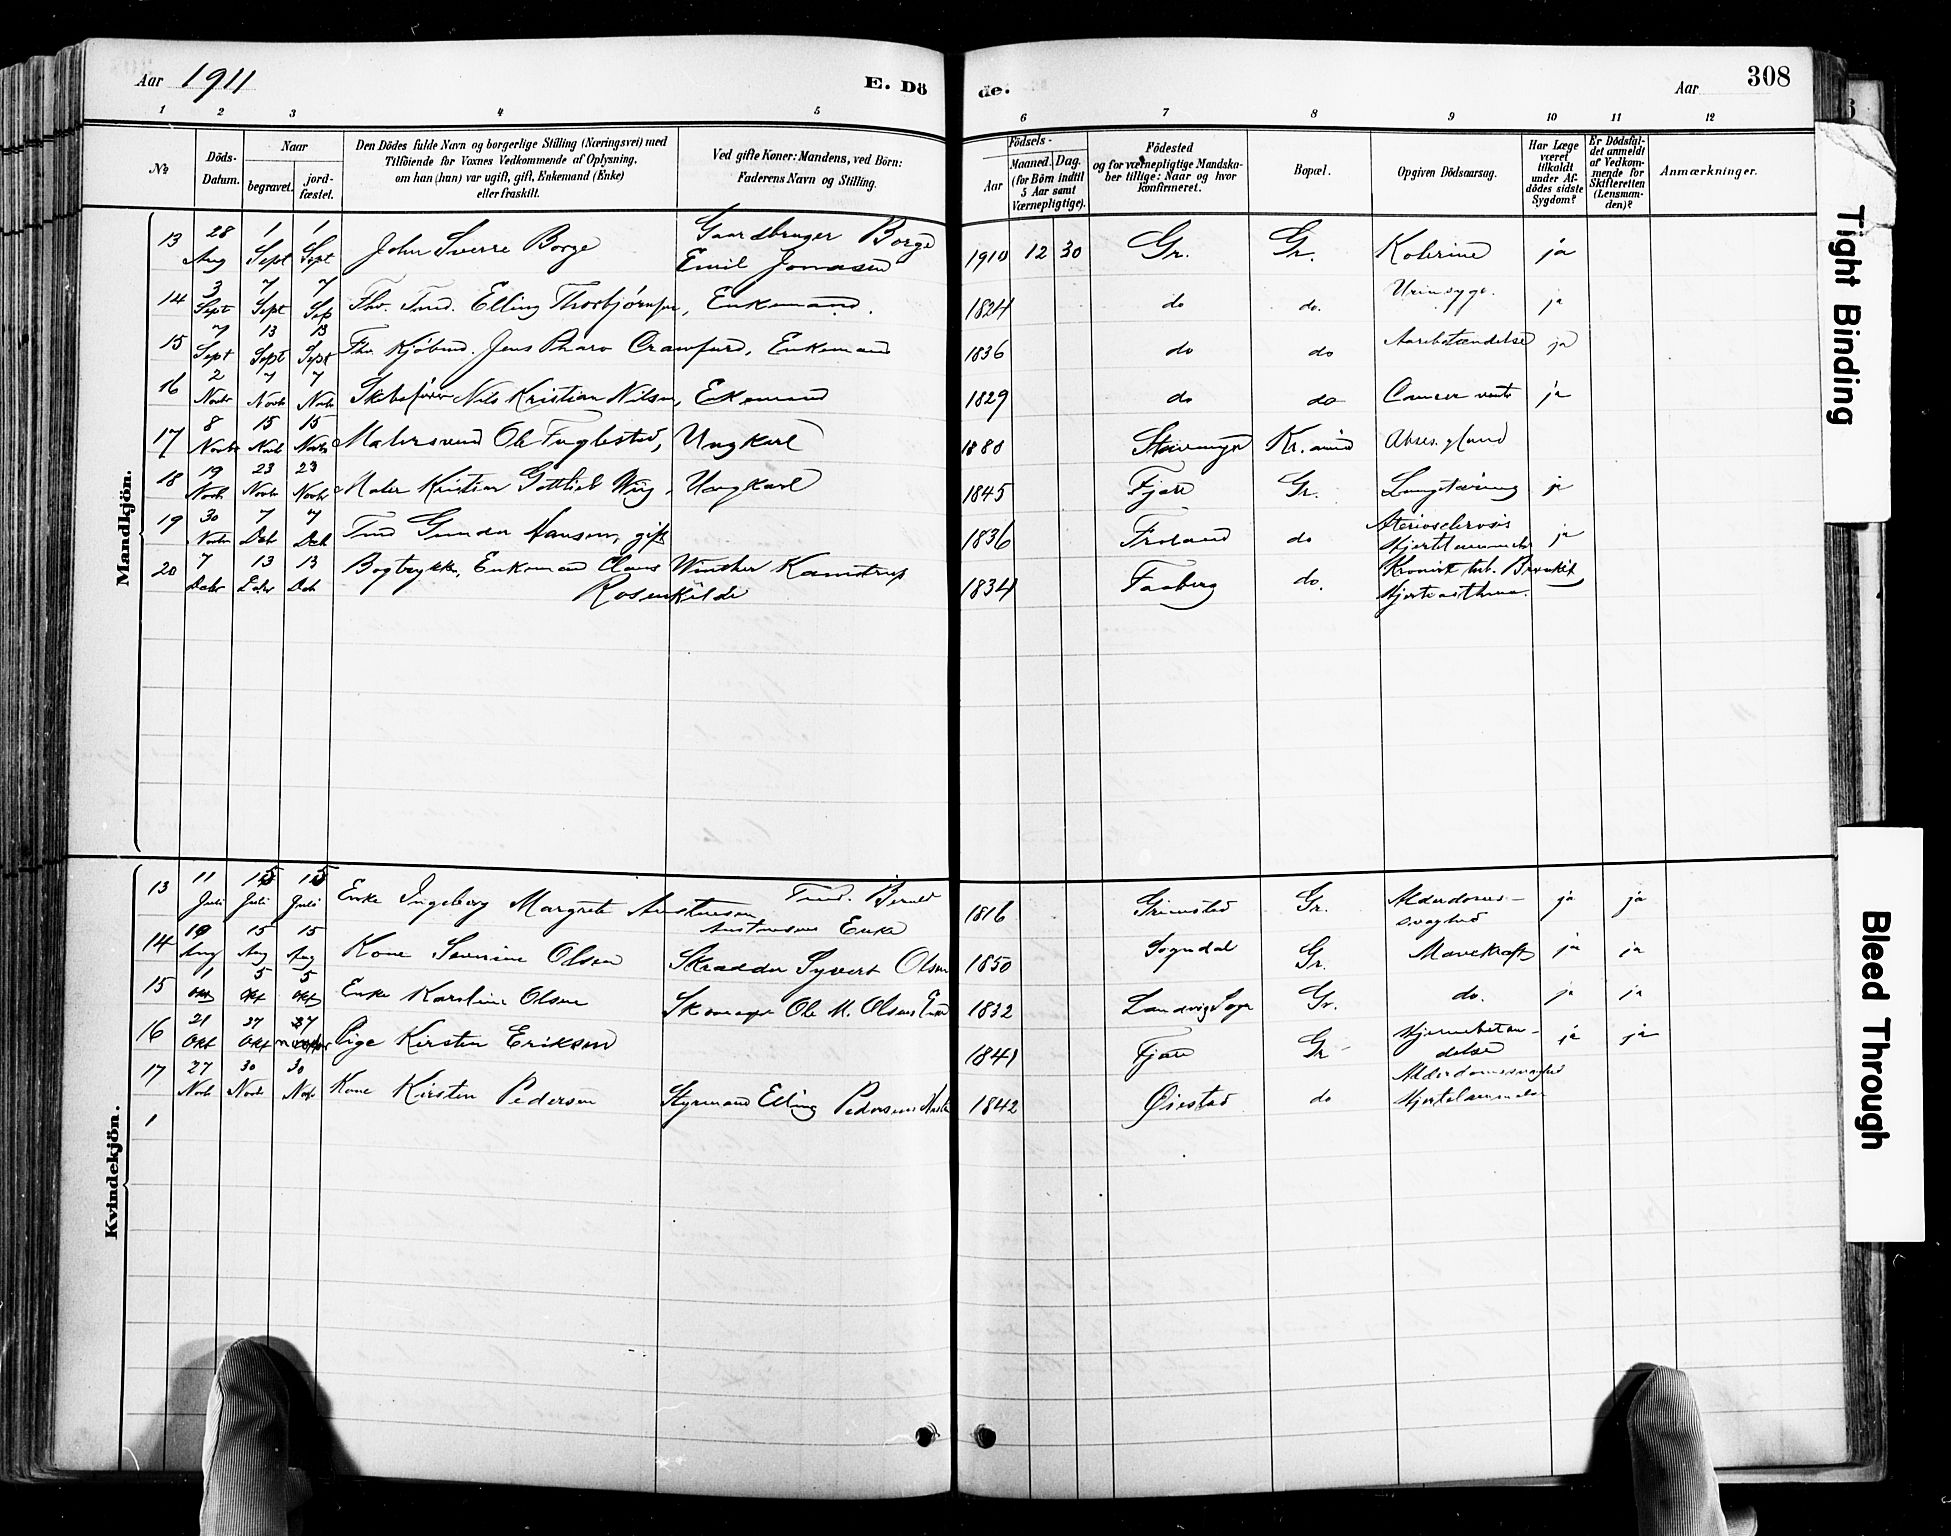 Aar 1911 E. Dö de. Aar 308
1 2 3 4 5 6 7 8 9 10 11 12
№
Döds-Datum.
Naar
begravet.
jord-fæstet.
Den Dödes fulde Navn og borgerlige Stilling (Næringsvei) med
Tilföiende for Voxnes Vedkommende af Oplysning,
om han (hun) var ugift, gift, Enkemand (Enke)
eller fraskilt.
Ved gifte Koner: Mandens, ved Börn:
Faderens Navn og Stilling.
Födsels-
Aar
Maaned. Dag.
(for Börn indtil
5 Aar samt
Værnepligtige).
Födested
og for værnepligtige Mandska-
ber tillige: Naar og hvor
konfirmeret.
Bopæl.
Opgiven Dödsaarsag.
Har Læge
været
tilkaldt
under Af-
dödes sidste
Sygdom?
Er Dödsfal-
det anmeldt
af Vedkom-
mende for
Skifteretten
(Lensman-
den)?
Anmærkninger.
Mandkjön.
13 28 Aug 1 Sept 1 Sept John Sverre Borge Gaardbruger Borge
Emil Jonassen 1910 12 30 Gr. Gr. Kolerine ja
14 3 Sept 7 Sept 7 Sep Fhv. Tmd. Elling Thorbjørnsen, Enkemand. 1824 do do. Urinsyge. ja
15 7 Sept 13 Sept 13 Sept Fhv. Kjøbmd. Jens Pharo Crawfurd, Enkemand 1836 do do Aarebetændelse ja
16 2 Novbr 7 Novbr 7 Novbr Skibsfører Nils Kristian Nilsen, Enkemand 1829 do do Cancer ventr ja
17 8 Novbr 15 Novb 15 Novbr Malersvend Ole Fuglestad, Ungkarl 1880 Stavanger Kr.sund
18 19 Novbr 23 Novbr 23 Novbr Maler Kristian Gottlieb Ungkarl 1845 Fjære Gr. Lungetæring ja
19 30 Novbr 7 Decbr 7 Decb Tmd Gunder Hansen, gift 1836 Froland do Aterioschlerosis
Hjertelammelse ja
20 7 Decbr 13 Decbr 13 Decb Bogtrykker, Enkemand Claus Winther Kamstrup
Rosenkilde 1834 Faaberg do. Kronisk tub. Bronkit
Hjerteasthma.
Kvindekjön.
13 11 Juli 15 Juli 15 Juli Enke Ingeborg Margrete Anstensen Tmd. Bernt
Anstensens Enke 1816 Grimstad Gr. Alderdoms-
svaghed ja ja
14 10 Aug 15 Aug 15 Aug Kone Severine Olsen Skrædder Syvert Olsen 1850 Sogndal Gr. Mavekræft ja ja
15 1 Okt 5 Okt 5 Okt Enke Karoline Olsen Ole M. Olsens Enke 1832 Landvig Sogn Gr. do. ja ja
16 21 Okt 27 Okt 27 Pige Kirsten Eriksen 1841 Fjære Gr Hjernebetæn-
delse ja ja
17 27 Novb 30 Novb 30 Novb Kone Kirsten Pedersen Styrmand Elling Pedersens 1842 Øiestad do Alderdomssvaghed
Hjertelammelse
1
Tight Binding
Bleed Through